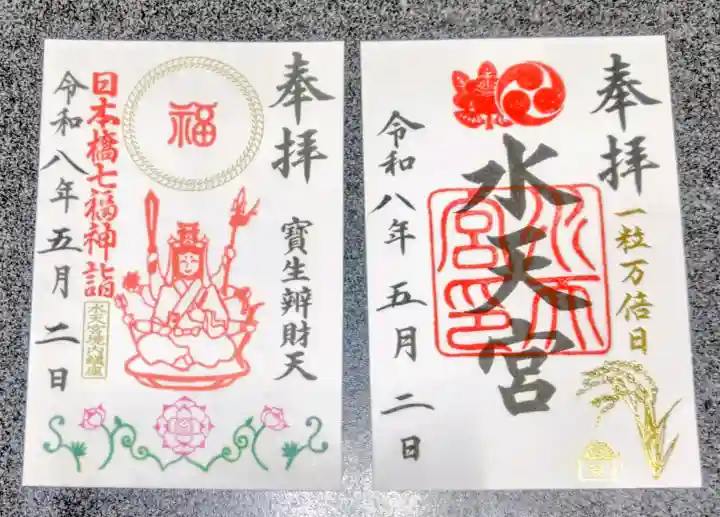 奉拝
寶生辨財天
福
日本橋七福神詣
水天宮境内鎮座
令和八年五月二日
奉拝
一粒万倍日
水天宮
水天宮印
令和八年五月二日